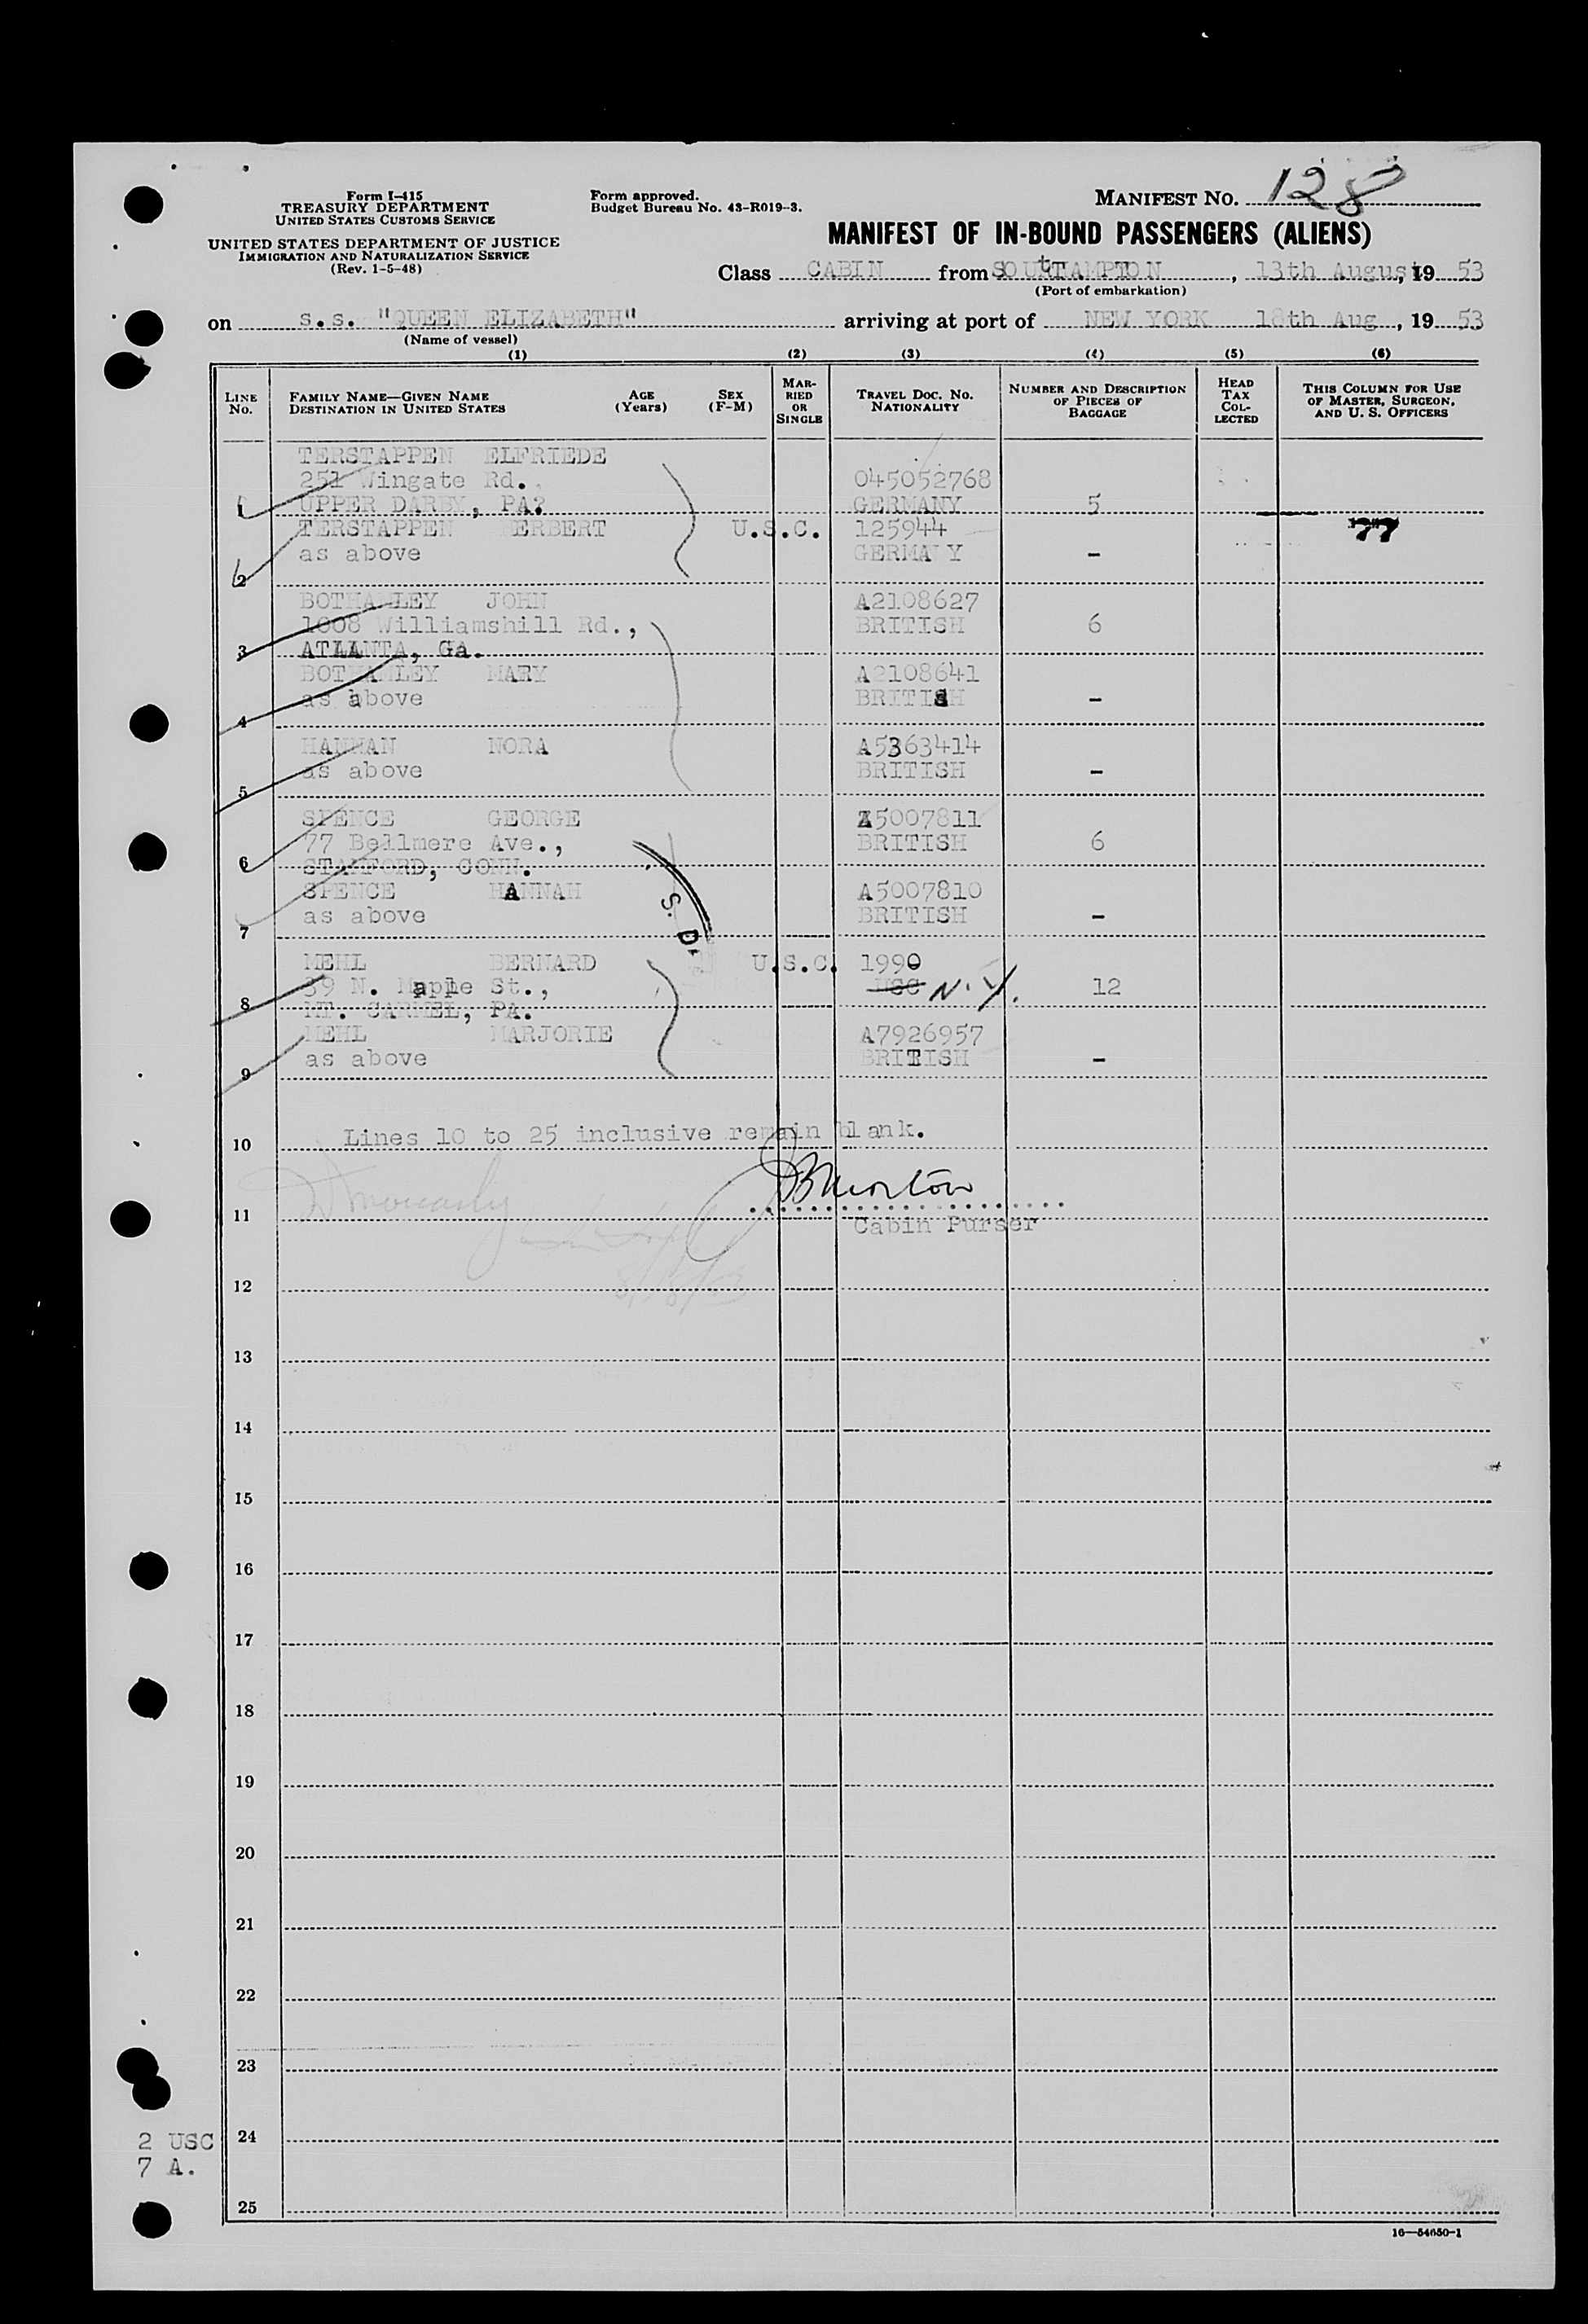 Form I-415
TREASURY DEPARTMENT
UNITED STATES CUSTOMS SERVICE
UNITED STATES DEPARTMENT OF JUSTICE
IMMIGRATION AND NATURALIZATION SERVICE
(Rev. 1-5-48)
Form approved.
Budget Bureau No. 43-R019-3.
MANIFEST NO. 128
MANIFEST OF IN-BOUND PASSENGERS (ALIENS)
Class CABIN from SOUTHAMPTON, 13th August, 19 53
(Port of embarkation)
on s.s. "QUEEN ELIZABETH" arriving at port of NEW YORK 18th Aug, 19 53
(Name of vessel)
(1) (2) (3) (4) (5) (6)
LINE NO. FAMILY NAME—GIVEN NAME DESTINATION IN UNITED STATES AGE (Years) SEX (F-M) MARRIED OR SINGLE TRAVEL DOC. NO. NATIONALITY NUMBER AND DESCRIPTION OF PIECES OF BAGGAGE HEAD TAX COLLECTED THIS COLUMN FOR USE OF MASTER, SURGEON, AND U. S. OFFICERS
TERSTAPPEN ELFRIEDE
251 Wingate Rd. 045052768
1 UPPER DARBY, PA? GERMANY 5
TERSTAPPEN HERBERT U.S.C. 125944 77
as above GERMA Y -
2
BOTHAMLEY JOHN A2108627
1008 Williamshill Rd., BRITISH 6
3 ATLANTA, Ga.
BOTHAMLEY MARY A2108641
as above BRITISH -
4
HANNAN NORA A5363414
as above BRITISH -
5
SPENCE GEORGE A5007811
77 Bellmere Ave., BRITISH 6
6 STAMFORD, CONN.
SPENCE HANNAH A5007810
as above BRITISH -
S. D.
7
MEHL BERNARD U.S.C. 1990
39 N. Maple St., USC N.Y. 12
8 MT. CARMEL, PA.
MEHL MARJORIE A7926957
as above BRITISH -
9
10 Lines 10 to 25 inclusive remain blank.
JB Morton
11 Cabin Purser
12
13
14
15
16
17
18
19
20
21
22
23
2 USC 24
7 A.
25
16—54650-1